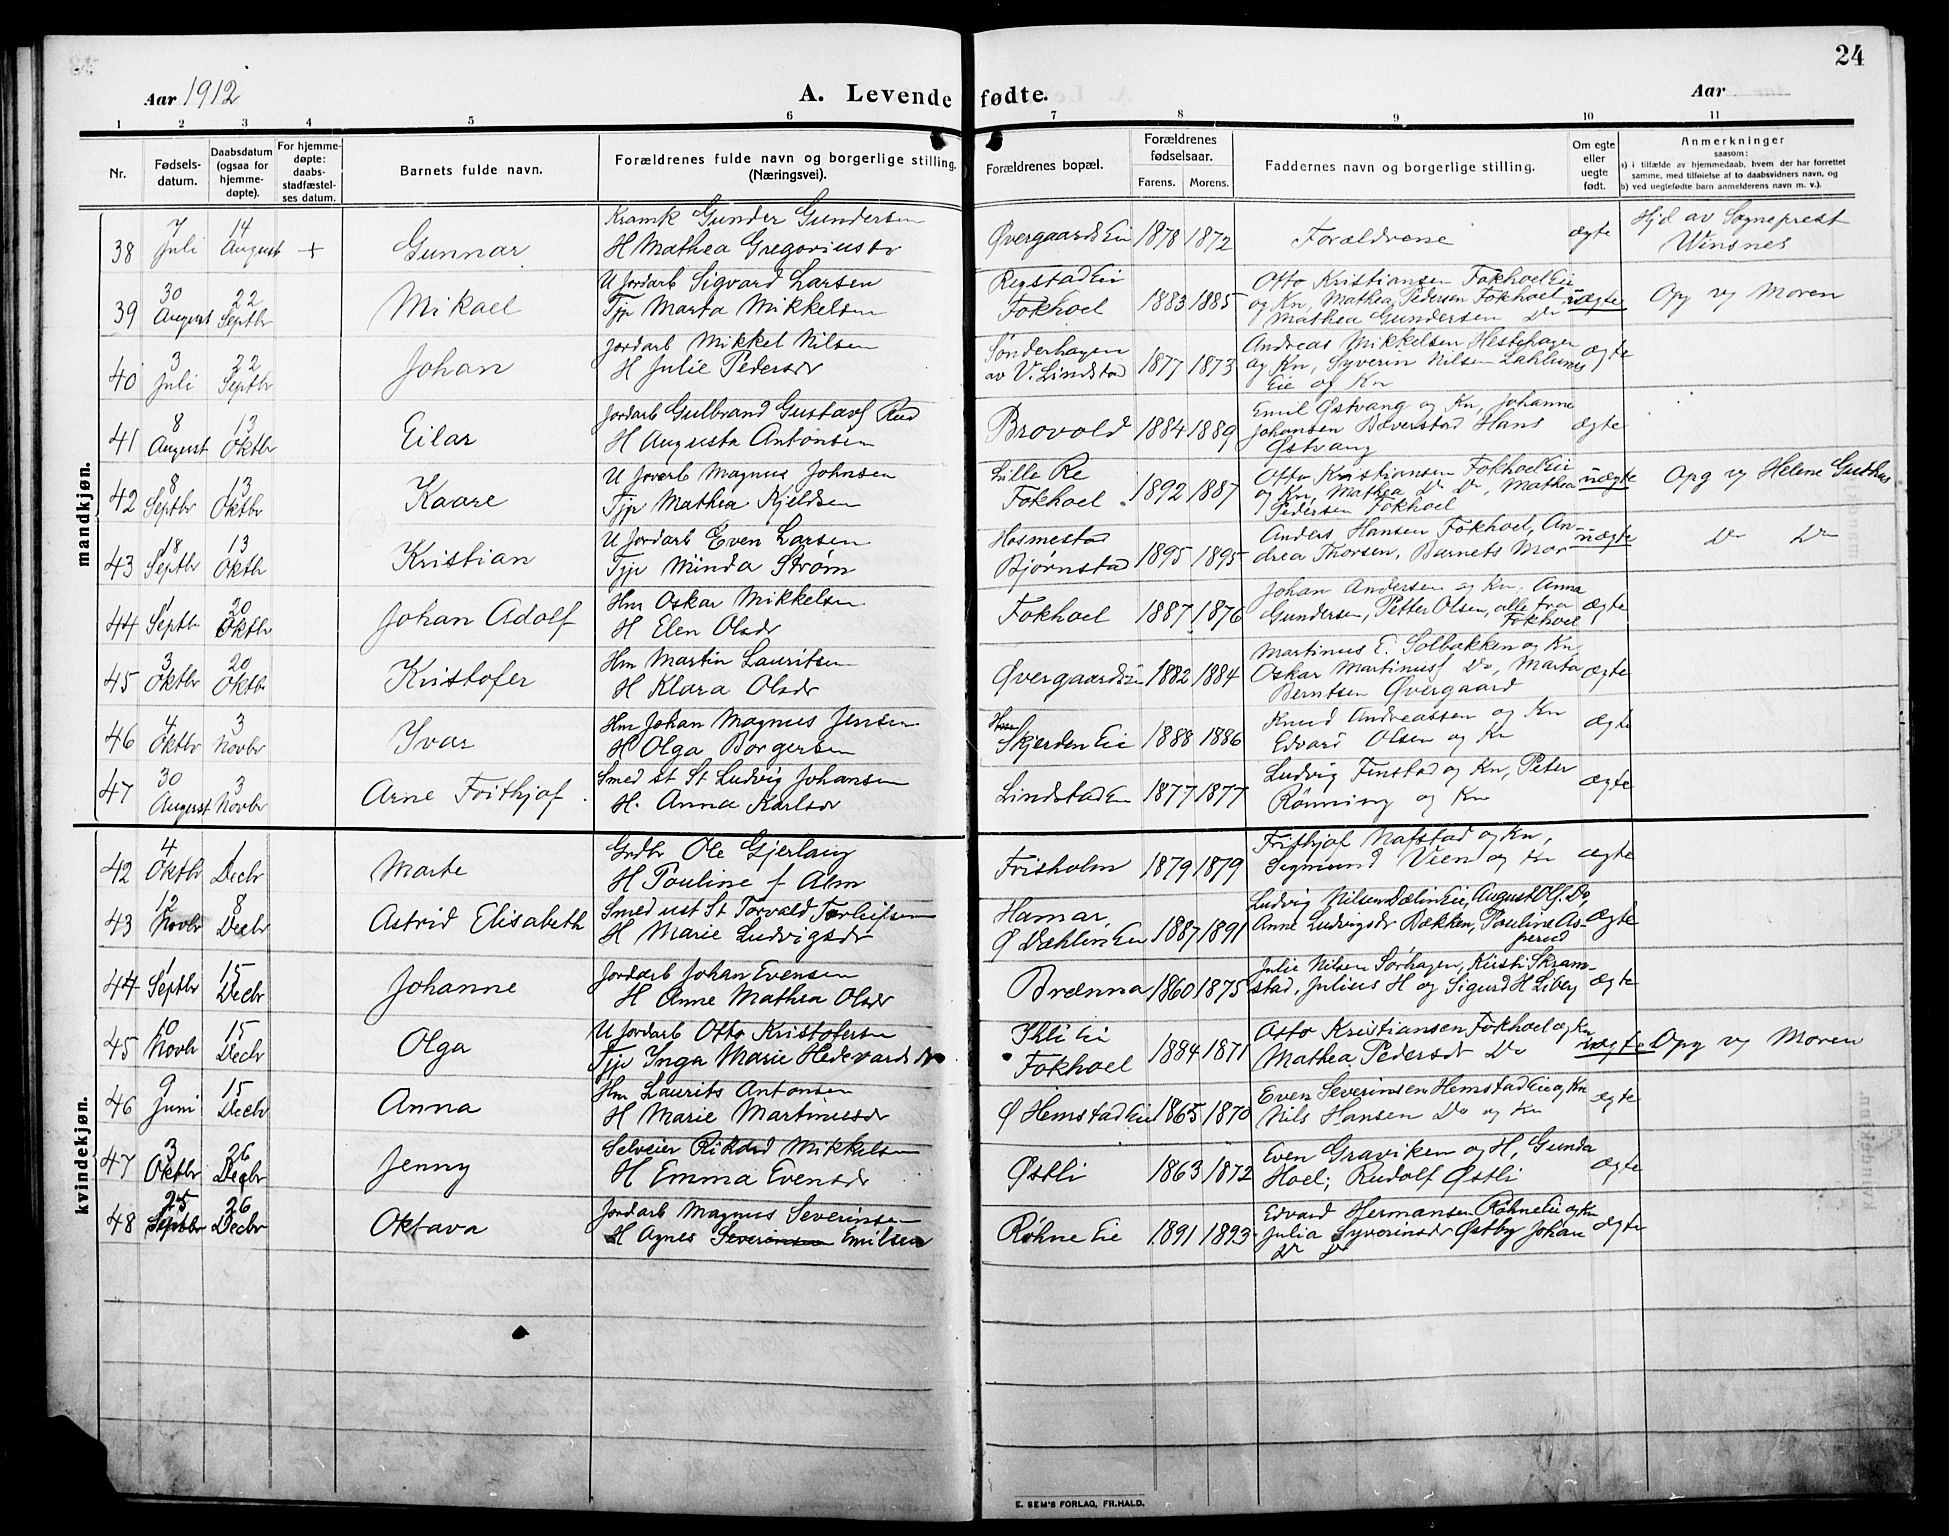 24
Aar 1912
A. Levende fødte.
Aar
1 2 3 4 5 6 7 8 9 10 11
Nr.
Fødsels-
datum.
Daabsdatum
(ogsaa for
hjemme-
døpte).
For hjemme-
døpte:
daabs-
stadfæstel-
ses datum.
Barnets fulde navn.
Forældrenes fulde navn og borgerlige stilling.
(Næringsvei).
Forældrenes bopæl.
Forældrenes
fødselsaar.
Farens. Morens.
Faddernes navn og borgerlige stilling.
Om egte
eller
uegte
født.
Anmerkninger
saasom:
a) i tilfælde av hjemmedaab, hvem der har forrettet
samme, med tilføielse af to daabsvidners navn, og
b) ved uegtefødte barn anmelderens navn m. v.).
mandkjøn.
38 7 Juli 14 August + Gunnar
Kramk Gunder Gundersen
H Mathea Gregoriusdr
Øvergaards Eie 1878 1872 Forældrene ægte
Hjd av Sogneprest
Winsnes
39 30 August 22 Septbr Mikael
U Jordarb Sigvard Larsen
Tjp Marta Mikkelsen
Regstad Eie
Fokhoel 1883 1885
Otto Kristiansen Fokhoel Eie
og Kn, Mathea Pedersen Fokhoel
Mathea Gundersen Do
uægte Opg v Moren
40 3 Juli 22 Septbr Johan
Jordarb Mikkel Nilsen
H Julie Pedersdr
Sønderhagen
av V. Lindstad 1877 1873
Andreas Mikkelsen Hestehagen
og Kn, Syverin Nilsen
Eie og Kn
ægte
41 8 August 13 Oktbr Eilar
Jordarb Gulbrand Gustavs Rud
H Augusta Antonsen
Brovold 1884 1889
Emil Østvang og Kn, Johanne
Johansen Bæverstad Hans
Østvang
ægte
42 8 Septbr 13 Oktbr Kaare
U Jordarb Magnus Johnsen
Tjp Mathea Kjeldsen
Lille Re
Fokhoel 1892 1887
Otto Kristiansen Fokhoel Eie
og Kn, Mathea Do Do, Mathea
Pedersen Fokhoel
uægte Opg v Helene
43 18 Septbr 13 Oktbr Kristian
U Jordarb Even Larsen
Tjp Minda Strøm
Hosmestad
Bjørnstad 1895 1895
Anders Hansen Fokhoel, An-
drea Thorsen, Barnets Mor
uægte Do Do
44 1 Septbr 20 Oktbr Johan Adolf
Hm Oskar Mikkelsen
H Elen Olsdr
Fokhoel 1887 1876
Johan Andersen og Kn, Anna
Gundersen, Petter Olsen, alle fra
Fokhoel
ægte
45 3 Oktbr 20 Oktbr Kristofer
Hm Martin Lauritsen
H Klara Olsdr
Øvergaardseie 1882 1884
Martinus E. Solbakken og Kn,
Oskar Martinus Do, Marta
Berntsen Øvergaard
ægte
46 4 Oktbr 3 Novbr Ivar
Hm Johan Magnus Jensen
H Olga Borgersen
Skjerden Eie 1888 1886
Knud Andreassen og Kn
Edvard Olsen og Kn
ægte
47 30 August 3 Novbr Arne Frithjof
Smed st St Ludvig Johansen
H. Anna Karlsdr
Lindstad Eie 1877 1877
Ludvig Finstad og Kn, Peter
Rønning og Kn
ægte
kvindekjøn.
42 4 Oktbr 1 Decbr Marte
Grdbr Ole Gjerlaug
H Pouline f Alm
Frisholm 1879 1879
Frithjof Nafstad og Kn,
Sigmund Vien og Kn
ægte
43 12 Novbr 8 Decbr Astrid Elisabeth
Smed ust St Torvald Torleifsen
H Marie Ludvigsdr
Hamar,
Ø Dæhlin Eie 1887 1891
Ludvig Nilsen Dælin Eie, August Ols. Do,
Anne Ludvigsdr Bakken, Pauline As-
perud
ægte
44 1 Septbr 15 Decbr Johanne
Jordarb Johan Evensen
H Anne Mathea Olsdr
Brænna 1860 1875
Julie Nilsen Sørhagen, Kirsti Skram-
stad, Julius H og Sigurd H Liberg
ægte
45 10 Novbr 15 Decbr Olga
U Jordarb Otto Kristofersen
Tjp Inga Marie Hedevards dr
Ihli Eie
Fokhoel 1884 1871
Otto Kristiansen Fokhoel og Kn
Mathea Pedersdr Do
uægte Opg v Moren
46 9 Juni 15 Decbr Anna
Hm Laurits Antonsen
H Marie Martinusdr
Ø Hemstad Eie 1865 1870
Even Severinsen Hemstad Eie og Kn
Nils Hansen Do og Kn
ægte
47 3 Oktbr 26 Decbr Jenny
Selveier Rikard Mikkelsen
H Emma Evensdr
Østli 1863 1872
Even Graviken og H, Gunda
Hoel; Rudolf Østli
ægte
48 25 Septbr 26 Decbr Oktava
Jordarb Magnus Severinsen
H Agnes Severinsen Emilsen
Røhne Eie 1891 1893
Edvard Hermansen Røhne Eie og Kn
Julia Syverinsdr Østby Johan
Do Do
ægte
E. SEM'S FORLAG, FR.HALD.